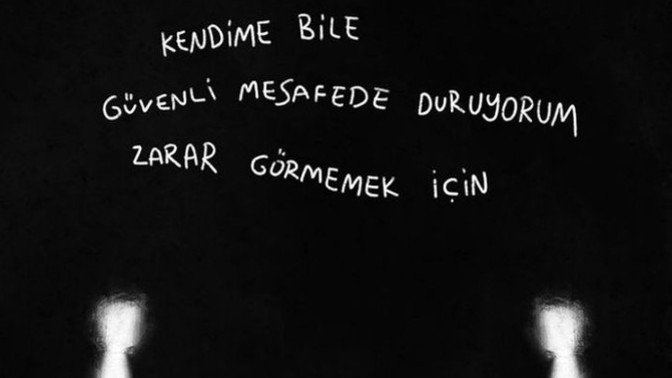 KENDİME BİLE
GÜVENLİ MESAFEDE DURUYORUM
ZARAR GÖRMEMEK İÇİN